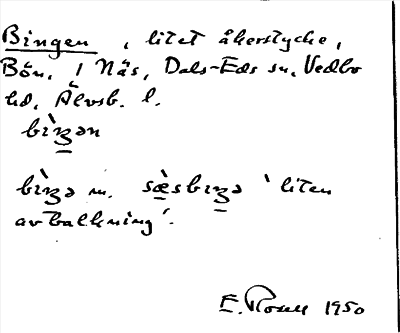 Bingen, litet åkerstycke,
Bön, 1 Näs, Dals-Eds sn, Vedbo
hd, Älvsb. l.
bìŋən
bìŋə m. sæ̀sbiŋə 'liten
avbalkning'.
E. 1950